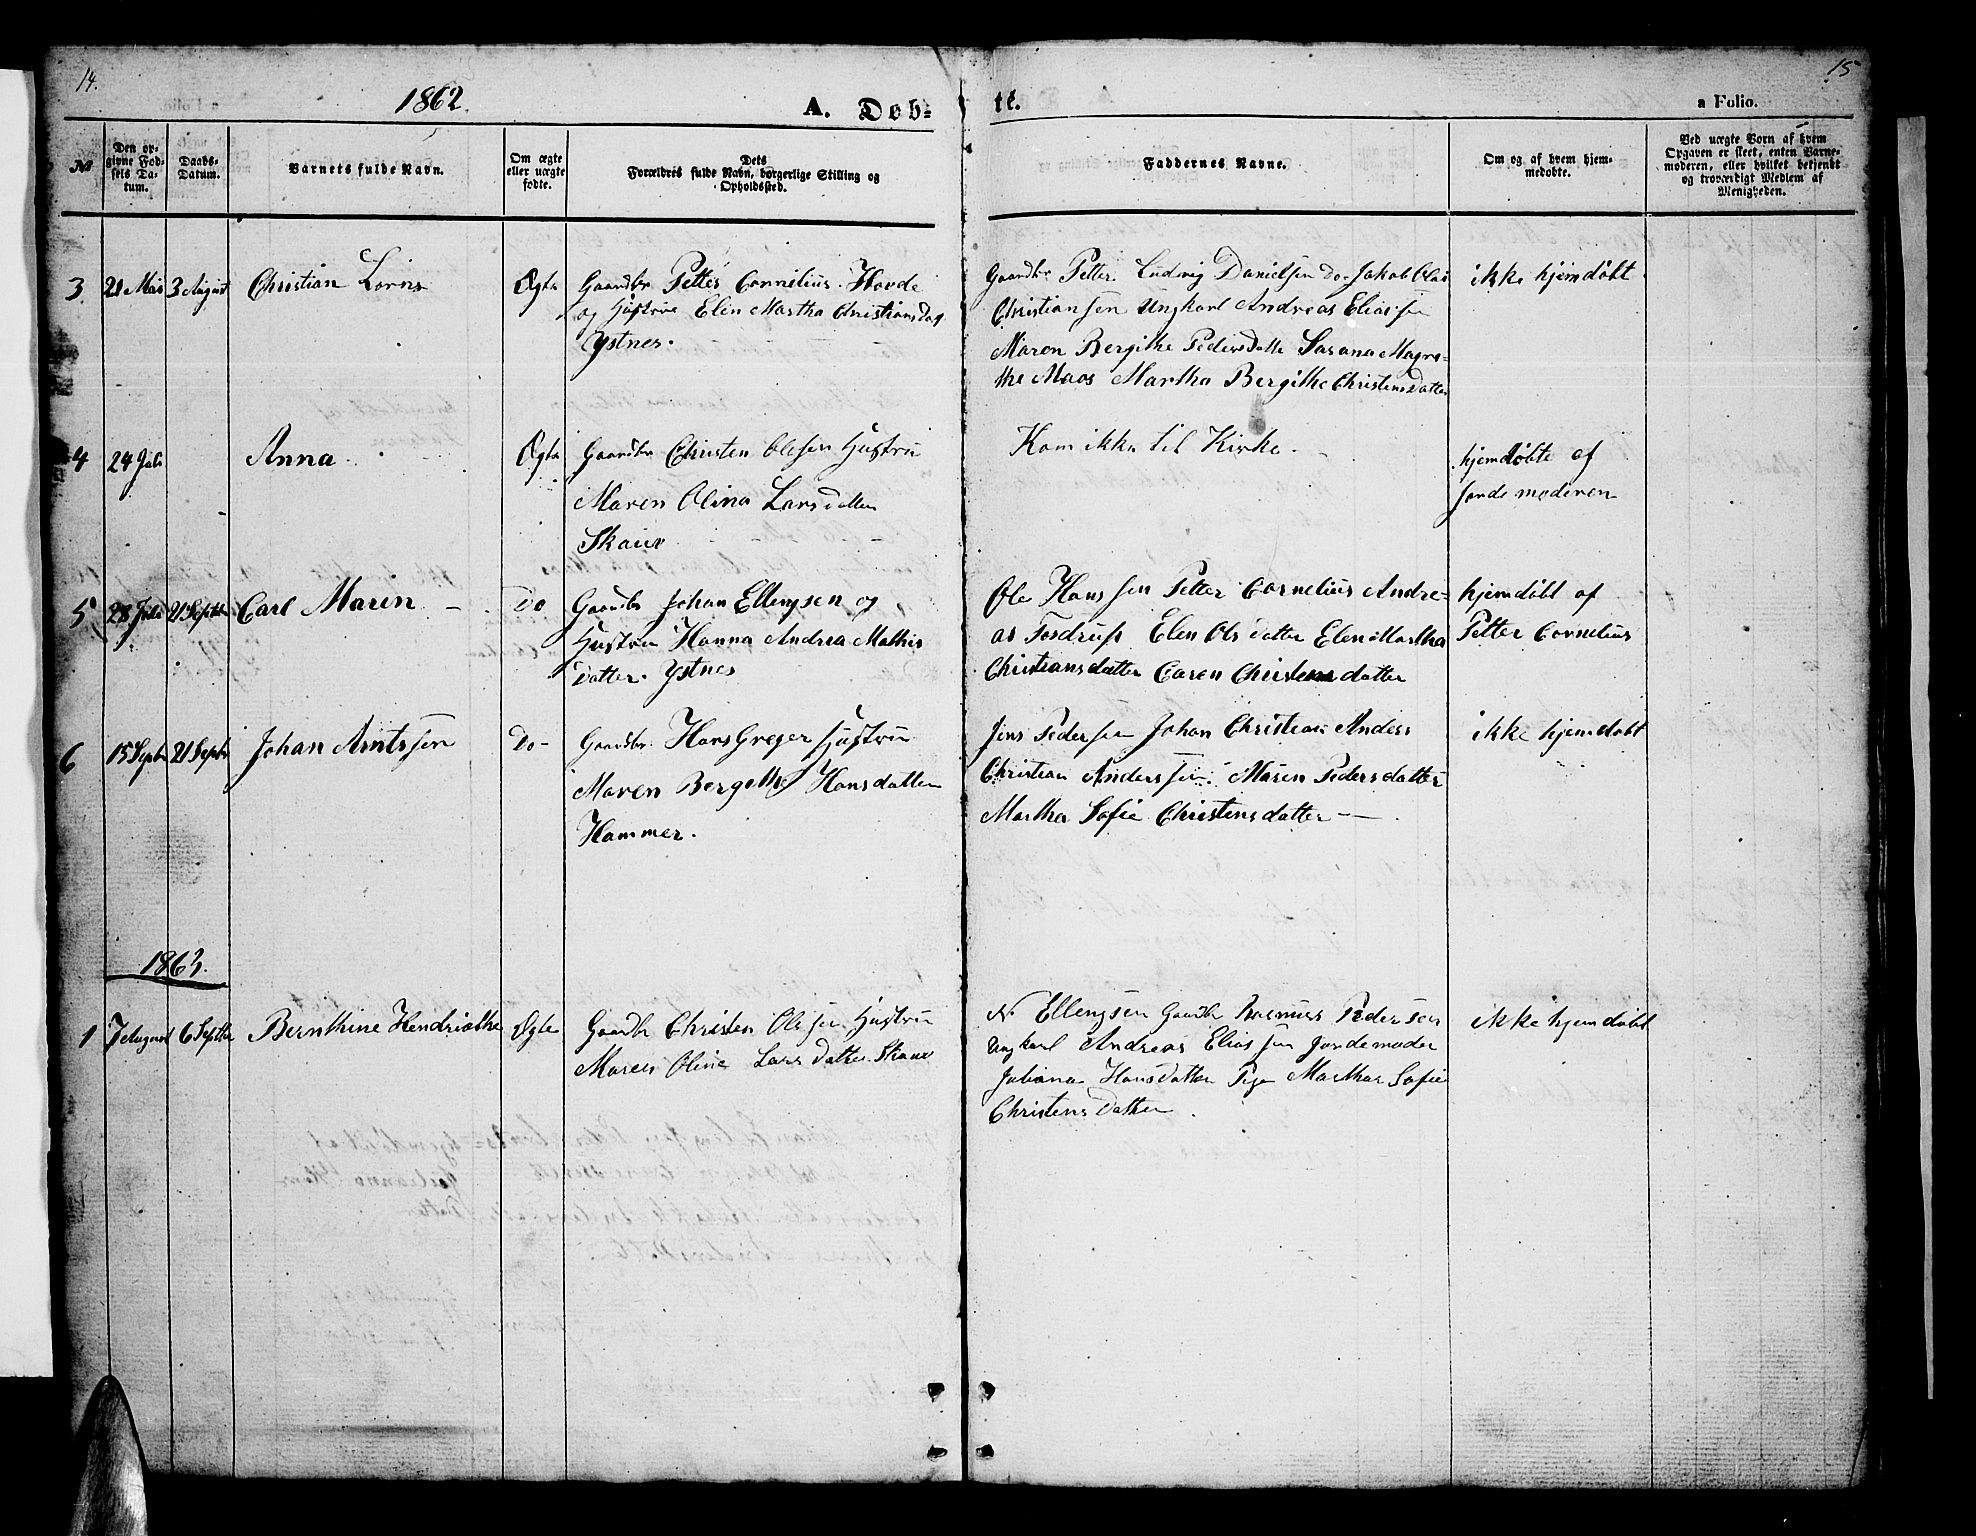 14.
15
1862.
A. Døb=
te.
a Folio.
№
Den op-
givne Fød-
sels Da-
tum.
Daabs-
Datum.
Barnets fulde Navn.
Om ægte
eller uægte
fødte.
Dets
Forældres fulde Navn, borgerlige Stilling og
Opholdssted.
Faddernes Navne.
Om og af hvem hjem-
medøbte.
Ved uægte Born af hvem
Opgaven er skeet, enten Barne-
moderen, eller hvilket bekjendt
og troværdigt Medlem af
Menigheden.
3 21 Mai 3 August Christian Lorns Ægte Gaardbr Petter Cornelius Hovde
og Hustrue Elen Martha Christiansdag
Ystnes.
Gaardbr Petter Ludvig Danielsen Do Jakob Olai
Christiansen Ungkarl Andreas Eliassen
Maren Bergithe Pedersdatte Sasana Magre-
the Maas Martha Bergithe Christensdatter
ikke hjemdöbt
4 24 Juli Anna Ægte Gaardbr Christen Olesen Hustru
Maren Olina Larsdatter
Skaux
Kom ikke til Kirke.
hjemdöbte af
Jordemoderen
5 28 Juli 21 Septbr Carl Marin Do Gaardbr Johan Ellengsen og
Hustru Hanna Andrea Mathis
datter. Ystnes
Ole Hanssen Petter Cornelius Andre-
as Tosdrup Elen Olsdatter Elen Martha
Christiansdatter Caren Christensdatter
hjemdöbt af
Petter Cornelius
6 15 Septbr 21 Septbr Johan Arntssen Do- Gaardbr. Hans Greger Hustrue
Maren Bergethe Hansdatter
Hammer.
Jens Pedersen Johan Christian Anders
Christian Anderssen. Maren Pedersdatter
Martha Sofie Christensdatter
ikke hjemdobt
1863.
1 7 August 6 Septbr Bernthine Hendriethe Ægte Gaardbr Christen Olessen Hustrue
Maren Oline Larsdatter Skaux
N Ellengsen Gaardbr Rasmus Pedersen
Ungkarl Andreas Eliassen Jordemoder
Juliana Hansdatter Pige Marthas Sofie
Christensdatter.
ikke hjemdobt